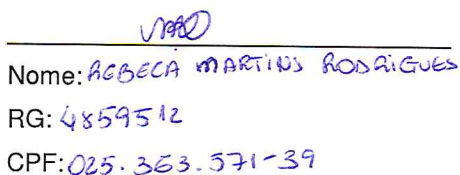 Nome: REBECA MARTINS RODRIGUES
RG: 4859512
CPF: 025.363.571-39